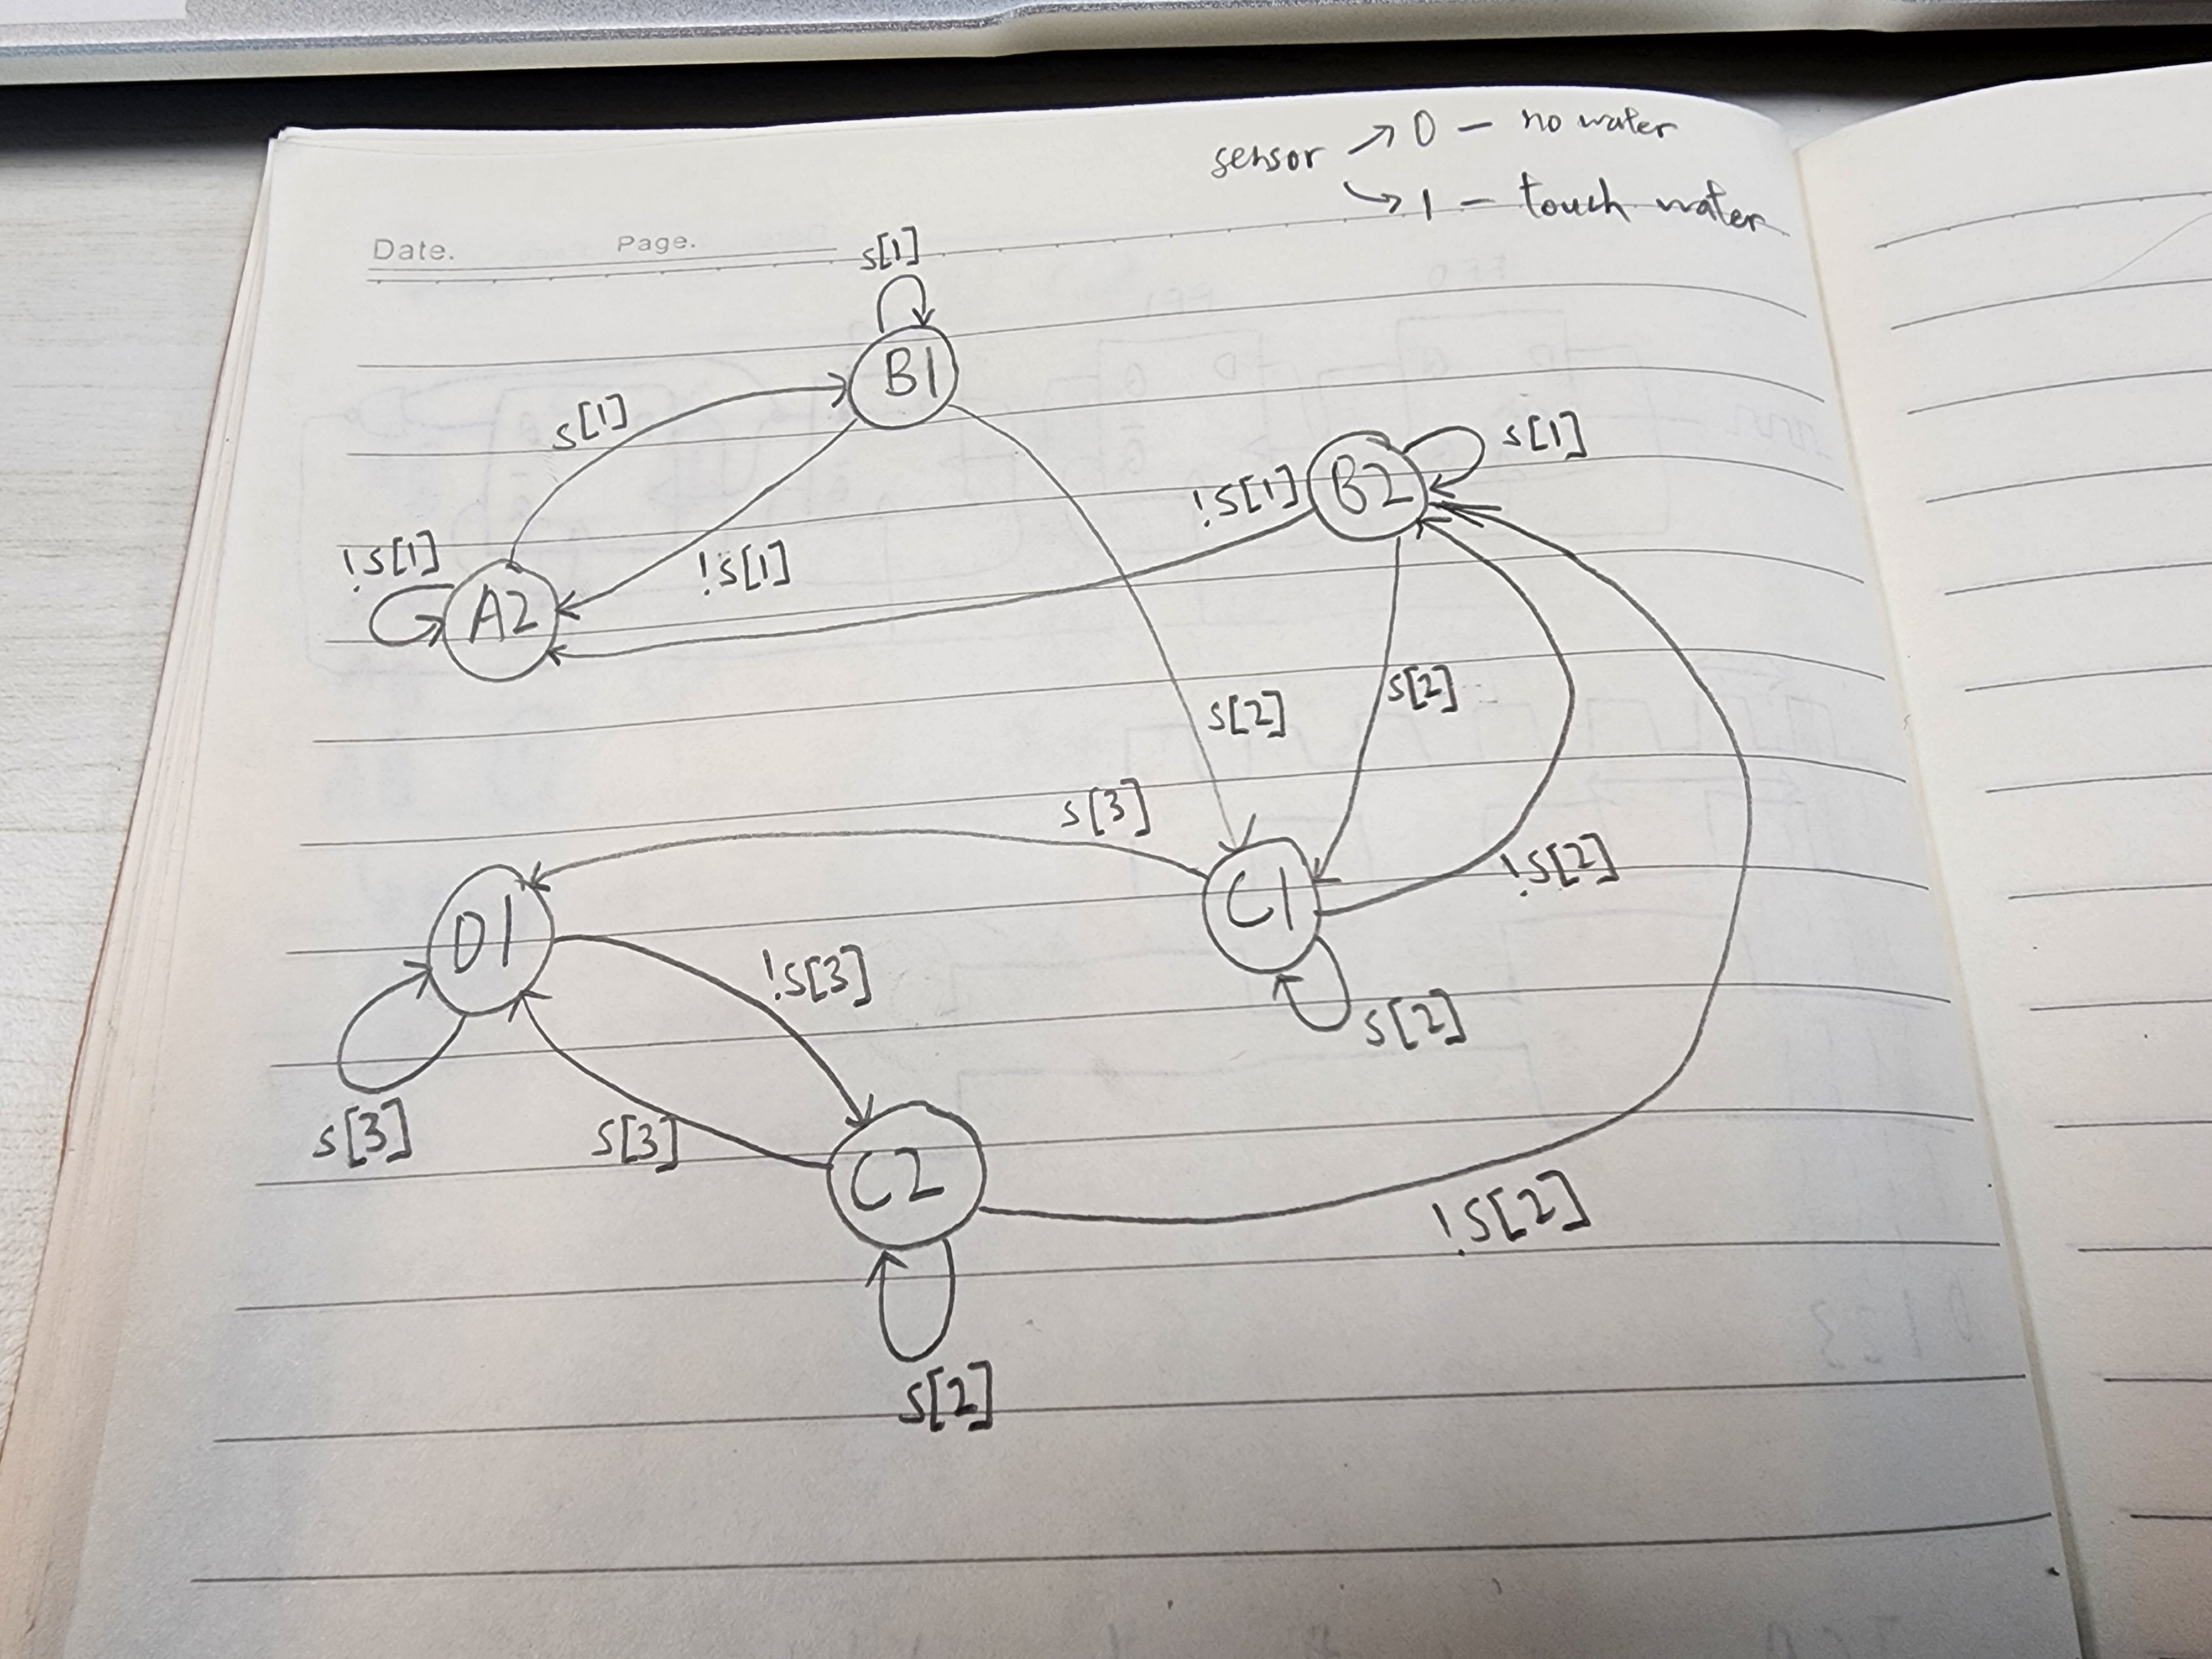 sensor → 0 — no water
↘ 1 — touch water
Date. Page.
s[1]
B1
s[1]
s[1]
B2
!s[1]
!s[1]
!s[1]
A2
s[2]
s[2]
s[3]
!s[2]
D1
C1
!s[3]
s[2]
s[3]
s[3]
C2
!s[2]
s[2]